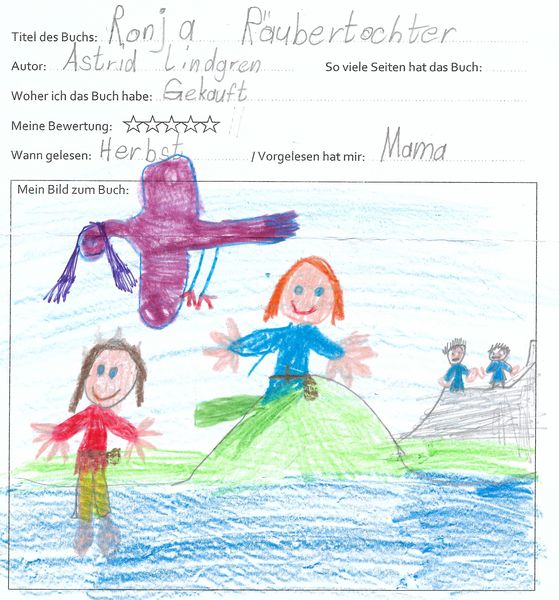 Titel des Buchs: Ronja Räubertochter
Autor: Astrid Lindgren So viele Seiten hat das Buch:
Woher ich das Buch habe: Gekauft
Meine Bewertung:
Wann gelesen: Herbst / Vorgelesen hat mir: Mama
Mein Bild zum Buch: